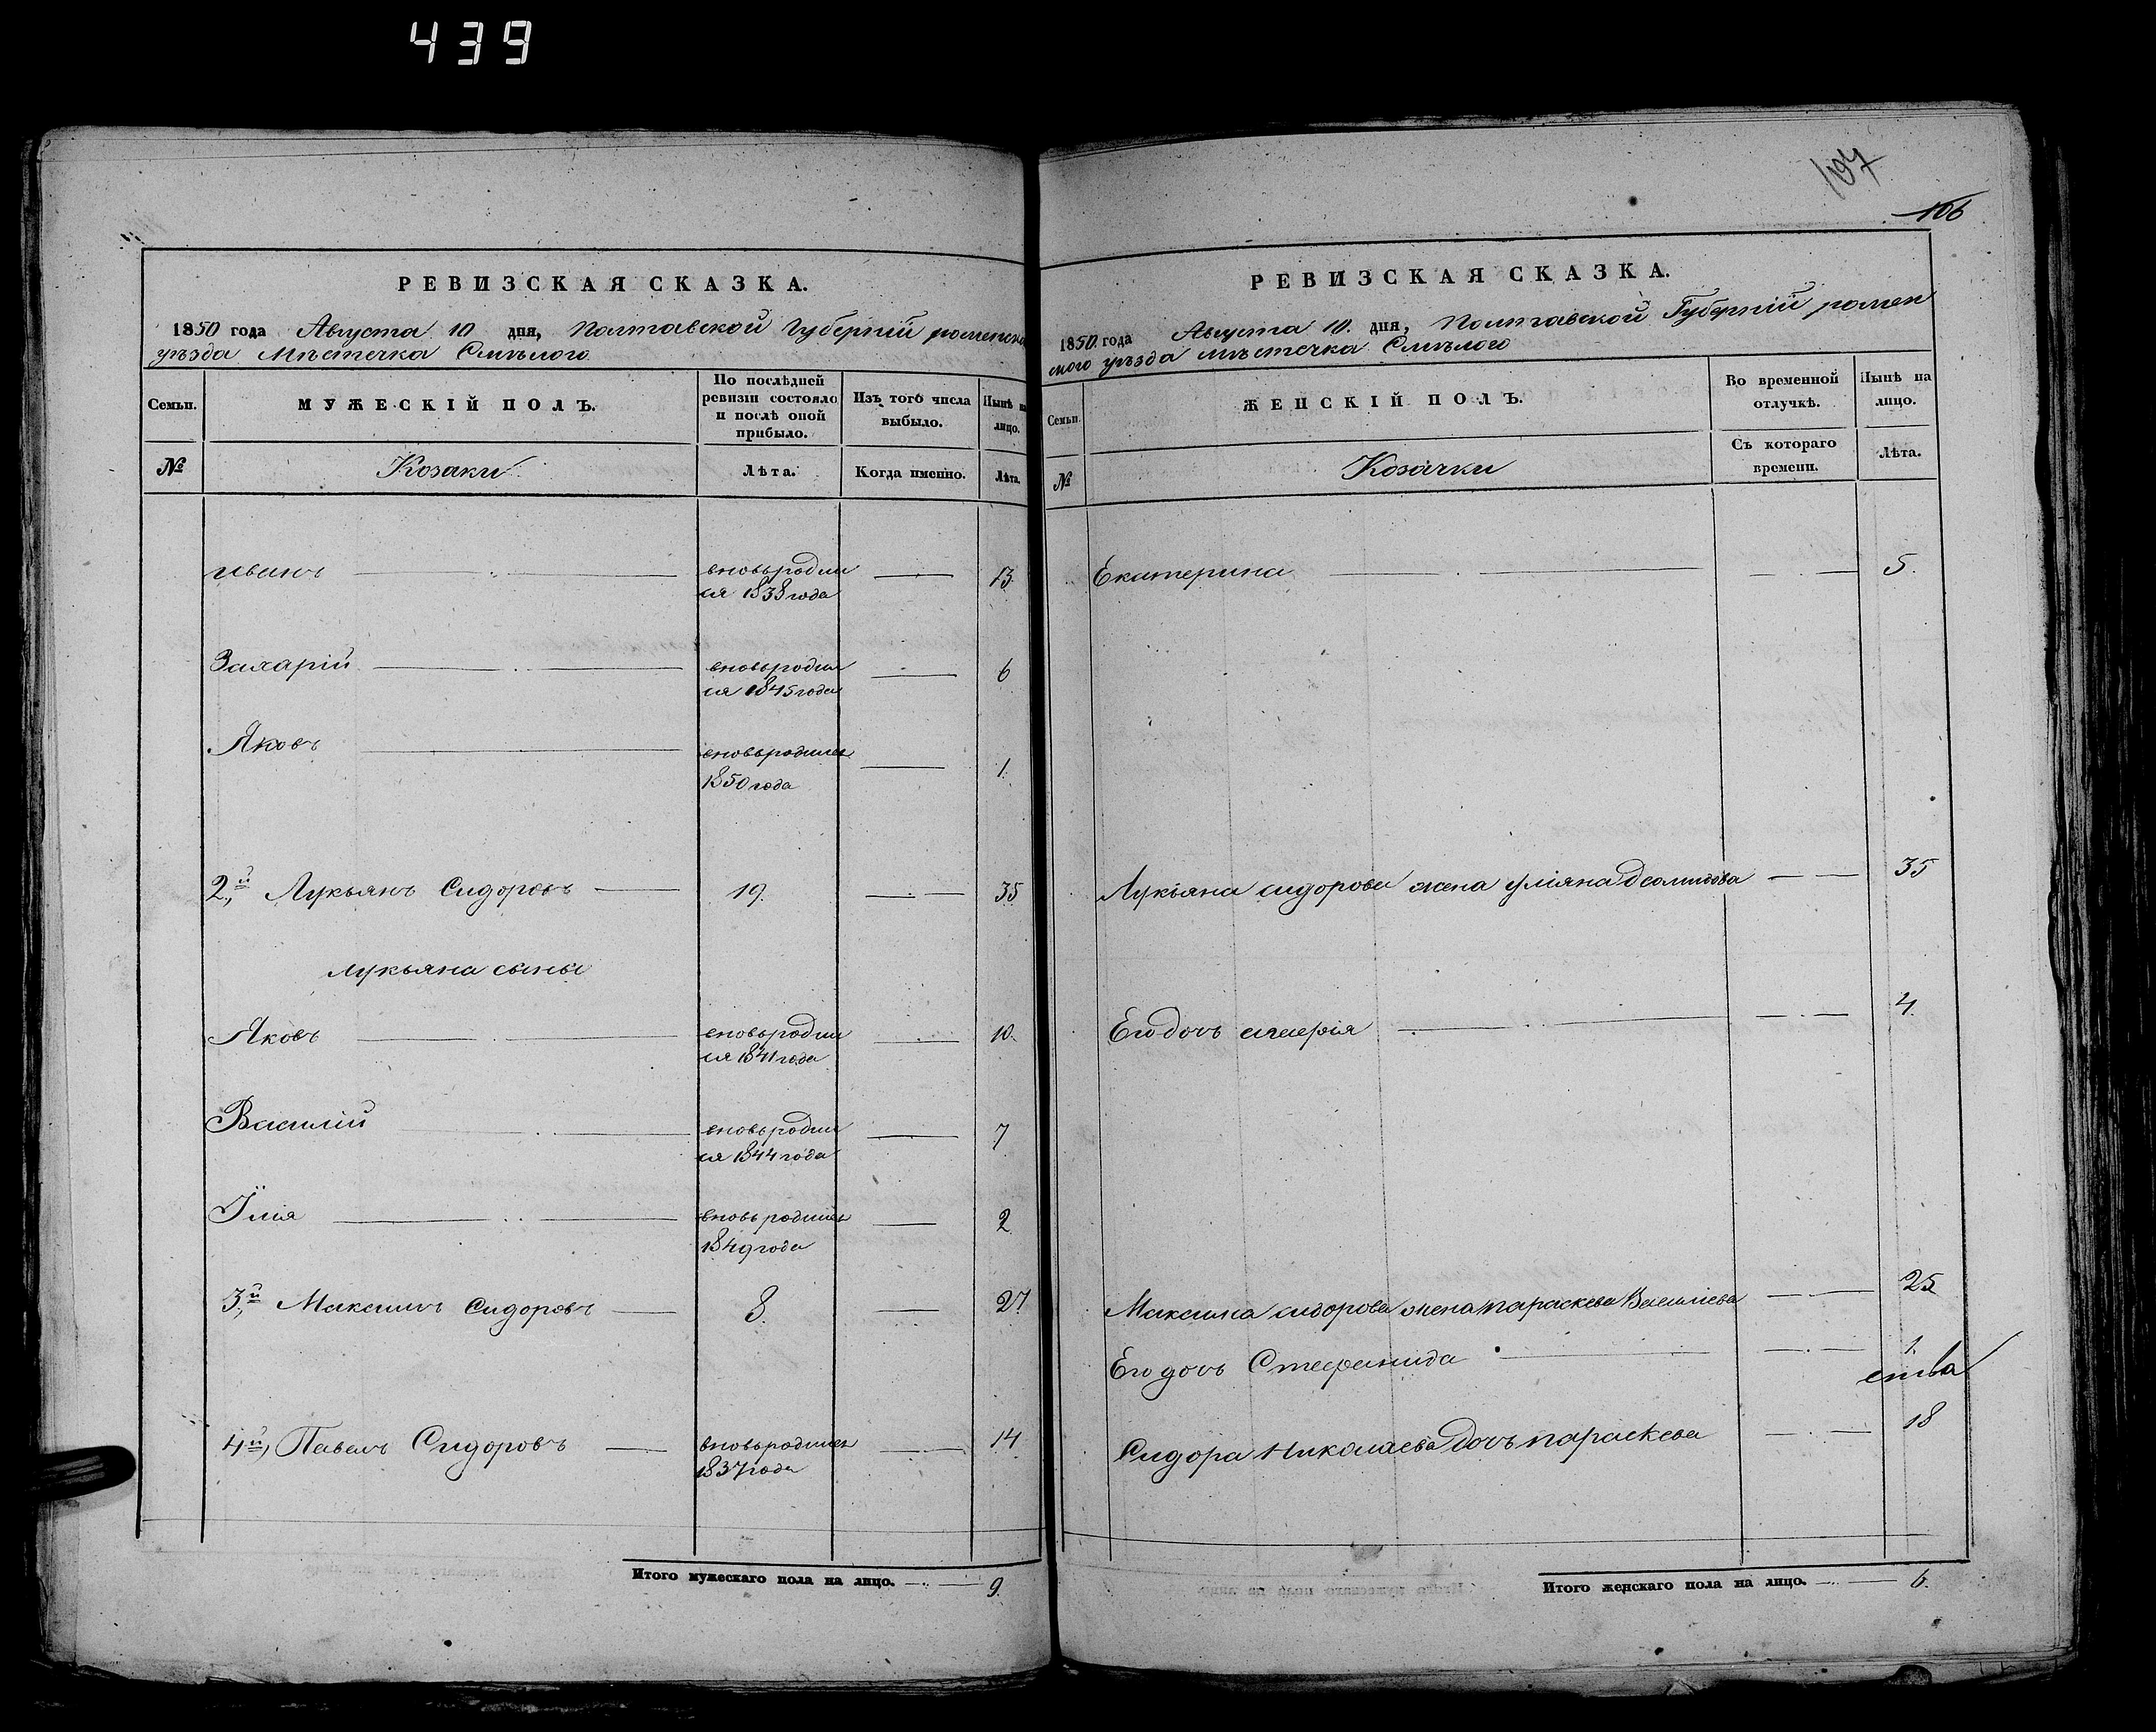 439
РЕВИЗСКАЯ СКАЗКА.
1850 года Августа 10 дня, Полтавской Губерніи роменска
уѣзда Мѣстечка Смѣлого
Семьи.
МУЖЕСКІЙ ПОЛЪ.
По послѣдней ревизіи состояло и послѣ оной прибыло.
Изъ того числа выбыло.
Нынѣ на лицо.
№
Козаки
Лѣта.
Когда именно.
Лѣта.
иванъ вновьродил 13
ся 1838 года
Захарій вновьродил 6
ся 1845 года
Яковъ вновьродился 1.
1850 года
2й, Лукьянъ Сидоровъ 19. 35
лукьяна сыны
Яковъ вновьродил 10.
ся 1841 года
Василій вновьродил 7
ся 1844 года
Илія вновьродился 2
1849 года
3й, Максимъ Сидоровъ 8. 27.
4й, Павелъ Сидоровъ вновьродился 14
1837 года
Итого мужескаго пола на лицо. 9.
107
106
РЕВИЗСКАЯ СКАЗКА.
1850 года Августа 10. дня, Полтавской Губерніи ромен
ского уѣзда мѣстечка Смѣлого
Семьи.
ЖЕНСКІЙ ПОЛЪ.
Во временной отлучкѣ.
Нынѣ на лицо.
№
Козачки
Съ котораго времени.
Лѣта.
Екатерина 5.
Лукьяна сидорова жена уліяна 35
Его дочь 4.
Максима сидорова жена параскева Василіева 25
Его дочь Стефанида 1.
Сидора Николаева дочь параскева 18
Итого женскаго пола на лицо. 6.